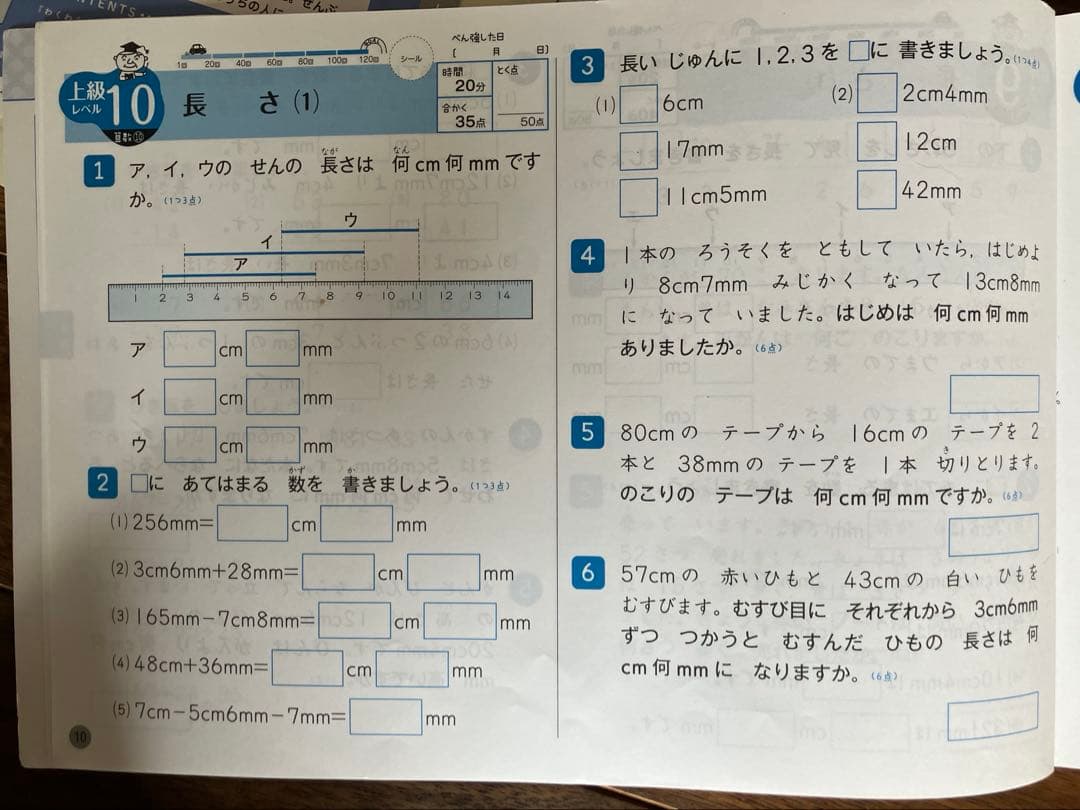 NTENTS
せんぶ
上級
レベル
10
算数⑩
1回 20回 40回 60回 80回 100回 120回
GOAL
シール
べん強した日
〔 月 日〕
時間
20分
とく点
合かく
35点
50点
長 さ (1)
1 ア，イ，ウの せんの 長さは 何cm何mmです
か。(1つ3点)
なが
なん
ウ
イ
ア
1 2 3 4 5 6 7 8 9 10 11 12 13 14
ア cm mm
イ cm mm
ウ cm mm
2 □に あてはまる 数を 書きましょう。(1つ3点)
かず
か
(1) 256mm= cm mm
(2) 3cm6mm+28mm= cm mm
(3) 165mm−7cm8mm= cm mm
(4) 48cm+36mm= cm mm
(5) 7cm−5cm6mm−7mm= mm
10
3 長い じゅんに 1，2，3を □に 書きましょう。(1つ4点)
(1) 6cm
17mm
11cm5mm
(2) 2cm4mm
12cm
42mm
4 1本の ろうそくを ともして いたら，はじめよ
り 8cm7mm みじかく なって 13cm8mm
に なって いました。はじめは 何cm何mm
ありましたか。(6点)
5 80cmの テープから 16cmの テープを 2
本と 38mmの テープを 1本 切りとります。
き
のこりの テープは 何cm何mmですか。(6点)
6 57cmの 赤いひもと 43cmの 白い ひもを
むすびます。むすび目に それぞれから 3cm6mm
ずつ つかうと むすんだ ひもの 長さは 何
cm何mmに なりますか。(6点)